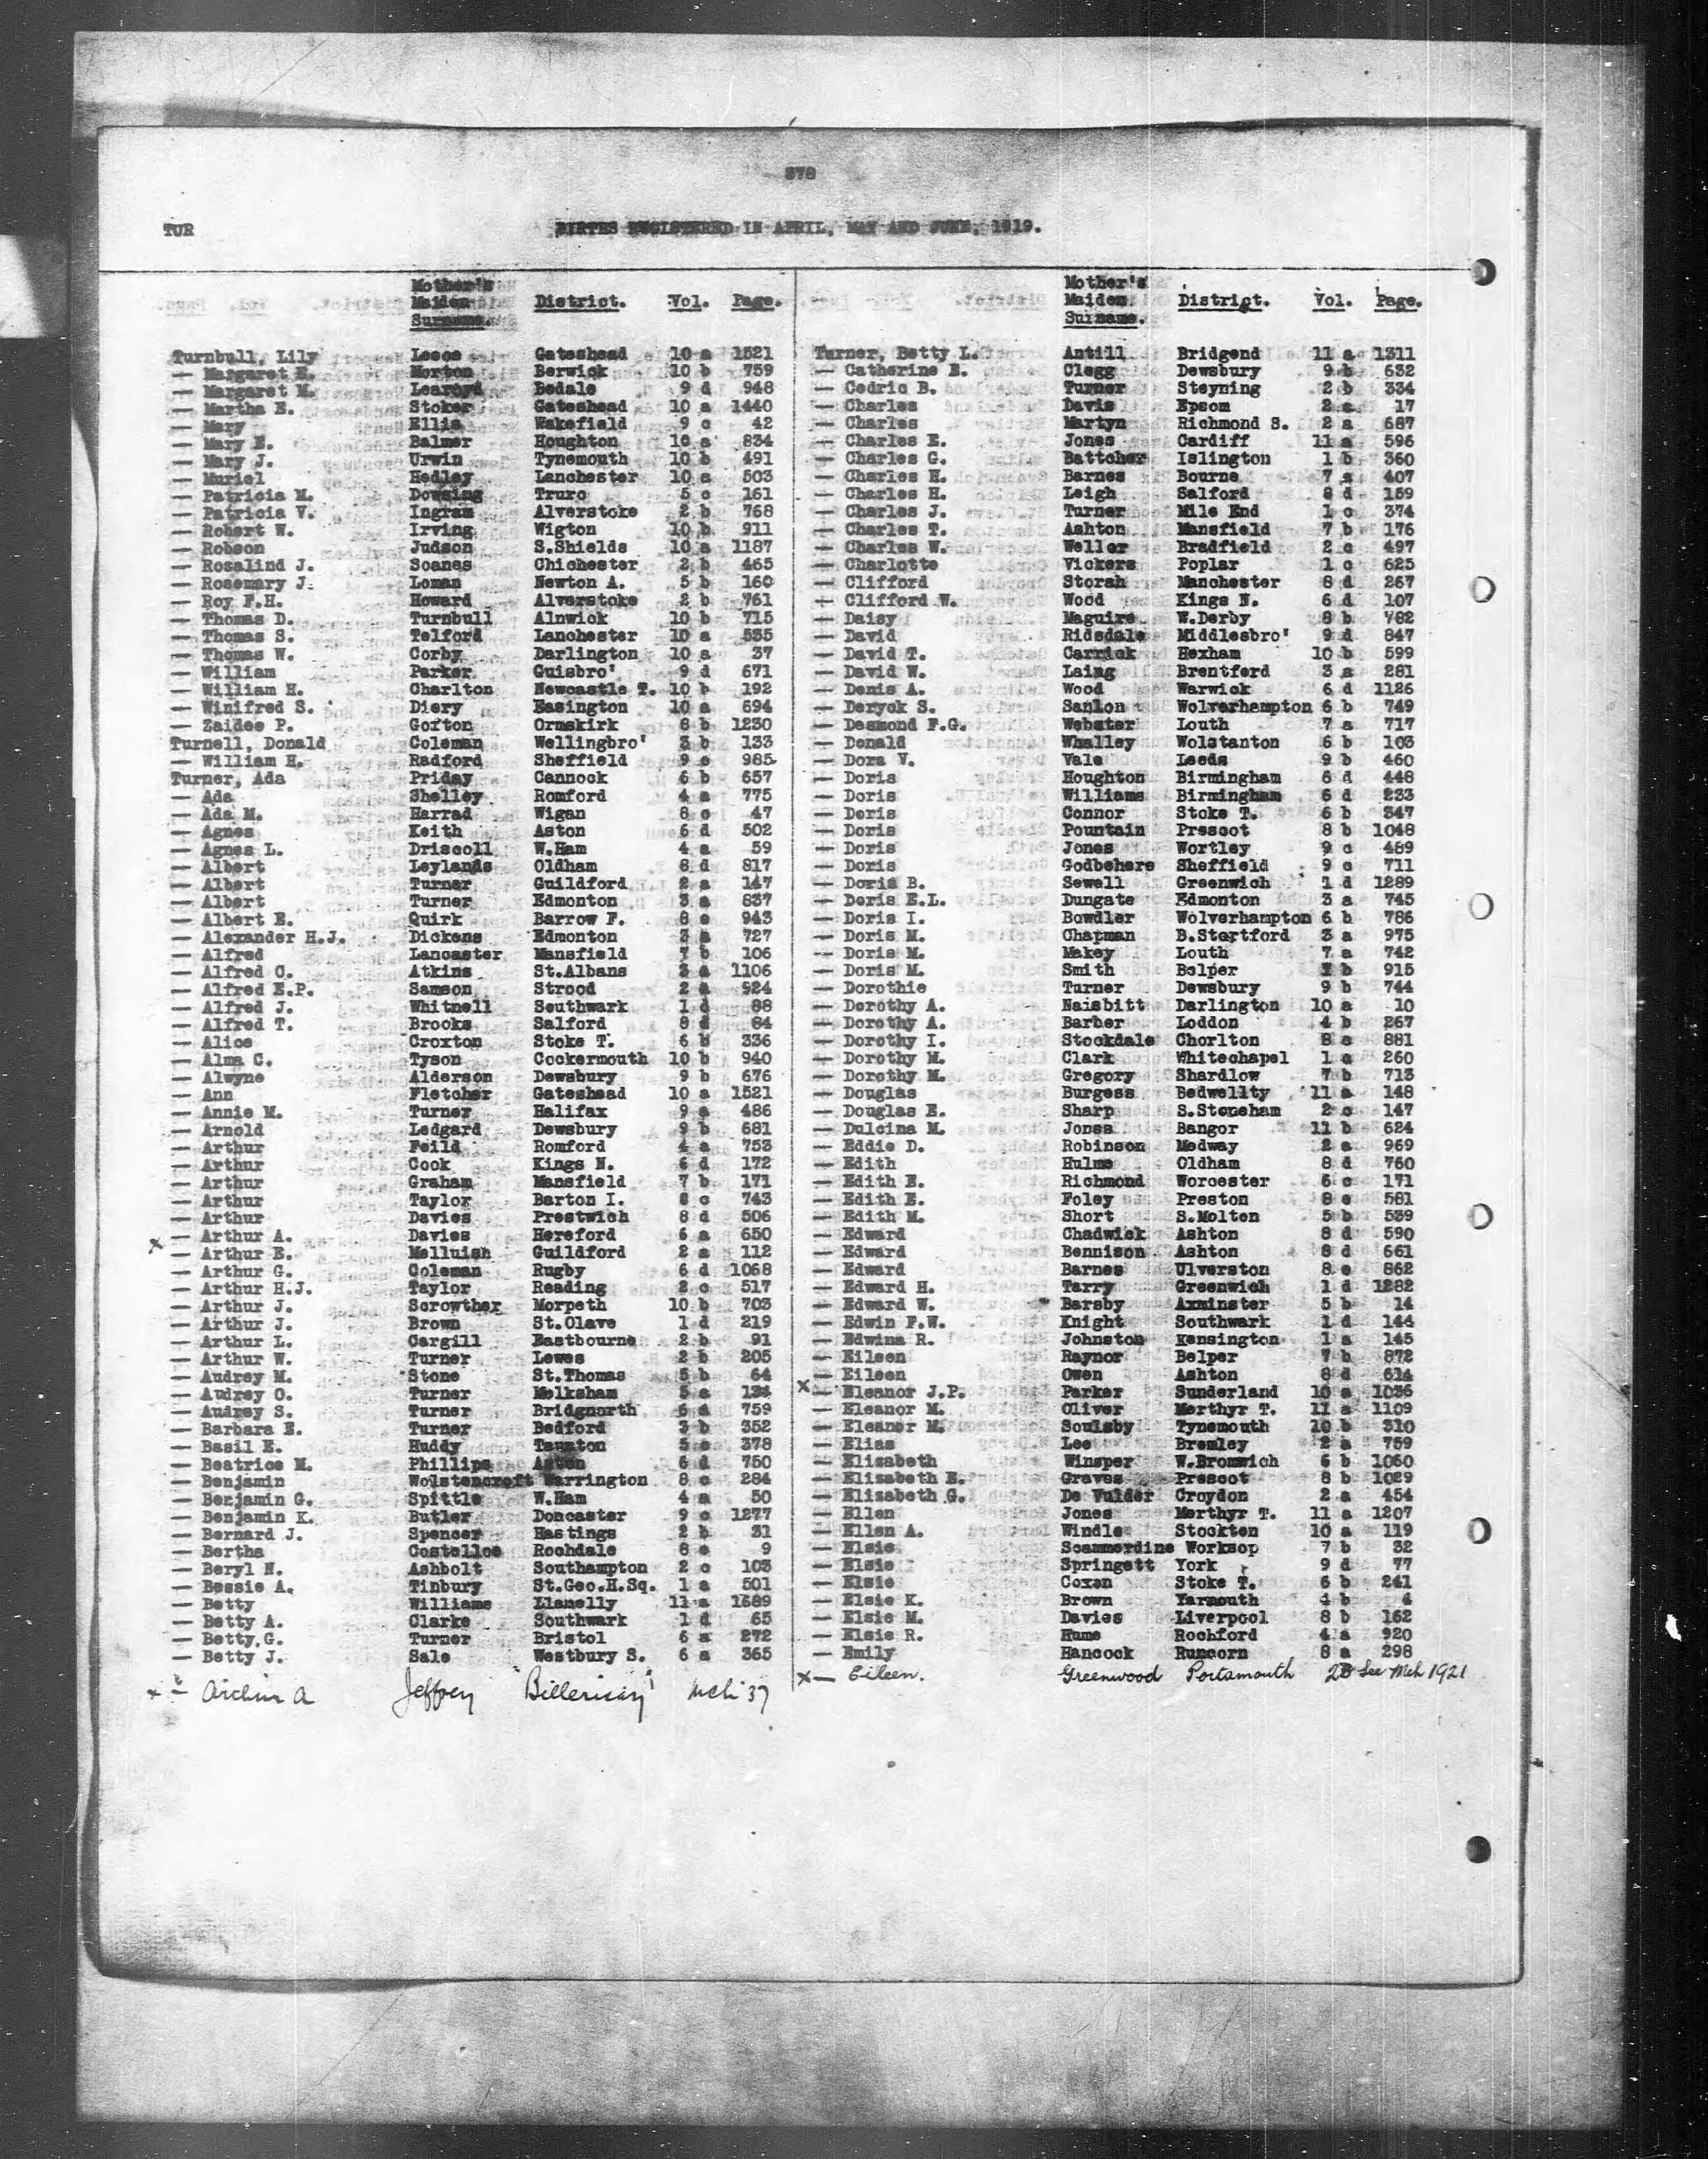 378
TUR
BIRTHS REGISTERED IN APRIL, MAY AND JUNE, 1919.
Mother's Maiden Surname. District. Vol. Page.
Turnbull, Lily Leece Gateshead 10 a 1521
— Margaret E. Morton Berwick 10 b 759
— Margaret M. Learoyd Bedale 9 d 948
— Martha E. Stoker Gateshead 10 a 1440
— Mary Ellis Wakefield 9 c 42
— Mary E. Balmer Houghton 10 a 834
— Mary J. Urwin Tynemouth 10 b 491
— Muriel Hedley Lanchester 10 a 503
— Patricia M. Dowsing Truro 5 c 161
— Patricia V. Ingram Alverstoke 2 b 768
— Robert W. Irving Wigton 10 b 911
— Robson Judson S.Shields 10 a 1187
— Rosalind J. Soanes Chichester 2 b 465
— Rosemary J. Loman Newton A. 5 b 160
— Roy F.H. Howard Alverstoke 2 b 761
— Thomas D. Turnbull Alnwick 10 b 715
— Thomas S. Telford Lanchester 10 a 535
— Thomas W. Corby Darlington 10 a 37
— William Parker Guisbro' 9 d 671
— William H. Charlton Newcastle T. 10 b 192
— Winifred S. Diery Easington 10 a 694
— Zaidee P. Gofton Ormskirk 8 b 1230
Turnell, Donald Coleman Wellingbro' 3 b 133
— William H. Radford Sheffield 9 c 985
Turner, Ada Priday Cannock 6 b 657
— Ada Shelley Romford 4 a 775
— Ada M. Harrad Wigan 8 c 47
— Agnes Keith Aston 6 d 502
— Agnes L. Driscoll W.Ham 4 a 59
— Albert Leylands Oldham 8 d 817
— Albert Turner Guildford 2 a 147
— Albert Turner Edmonton 3 a 837
— Albert E. Quirk Barrow F. 8 e 943
— Alexander H.J. Dickens Edmonton 3 a 727
— Alfred Lancaster Mansfield 7 b 106
— Alfred C. Atkins St.Albans 3 a 1106
— Alfred E.P. Samson Strood 2 a 924
— Alfred J. Whitnell Southwark 1 d 88
— Alfred T. Brooks Salford 8 d 84
— Alice Croxton Stoke T. 6 b 336
— Alma C. Tyson Cockermouth 10 b 940
— Alwyne Alderson Dewsbury 9 b 676
— Ann Fletcher Gateshead 10 a 1521
— Annie M. Turner Halifax 9 a 486
— Arnold Ledgard Dewsbury 9 b 681
— Arthur Feild Romford 4 a 753
— Arthur Cook Kings N. 6 d 172
— Arthur Graham Mansfield 7 b 171
— Arthur Taylor Barton I. 8 c 743
— Arthur Davies Prestwich 8 d 506
— Arthur A. Davies Hereford 6 a 650
x — Arthur E. Melluish Guildford 2 a 112
— Arthur G. Coleman Rugby 6 d 1068
— Arthur H.J. Taylor Reading 2 c 517
— Arthur J. Scrowther Morpeth 10 b 703
— Arthur J. Brown St.Olave 1 d 219
— Arthur L. Cargill Eastbourne 2 b 91
— Arthur W. Turner Lewes 2 b 205
— Audrey M. Stone St.Thomas 5 b 64
— Audrey O. Turner Melksham 5 a 134
— Audrey S. Turner Bridgnorth 6 a 759
— Barbara E. Turner Bedford 3 b 352
— Basil E. Huddy Taunton 5 c 378
— Beatrice M. Phillips Aston 6 d 750
— Benjamin Wolstencroft Warrington 8 c 284
— Benjamin G. Spittle W.Ham 4 a 50
— Benjamin K. Butler Doncaster 9 c 1277
— Bernard J. Spencer Hastings 2 b 31
— Bertha Costelloe Rochdale 8 e 9
— Beryl N. Ashbolt Southampton 2 c 103
— Bessie A. Tinbury St.Geo.H.Sq. 1 a 501
— Betty Williams Llanelly 11 a 1689
— Betty A. Clarke Southwark 1 d 65
— Betty G. Turner Bristol 6 a 272
— Betty J. Sale Westbury S. 6 a 365
x — Arthur A Jeffrey Billericay Mch '37
Mother's Maiden Surname. District. Vol. Page.
Turner, Betty L. Antill Bridgend 11 a 1311
— Catherine E. Clegg Dewsbury 9 b 632
— Cedric B. Turner Steyning 2 b 334
— Charles Davis Epsom 2 a 17
— Charles Martyn Richmond S. 2 a 687
— Charles E. Jones Cardiff 11 a 596
— Charles G. Battcher Islington 1 b 360
— Charles H. Barnes Bourne 7 a 407
— Charles H. Leigh Salford 8 d 159
— Charles J. Turner Mile End 1 c 374
— Charles T. Ashton Mansfield 7 b 176
— Charles W. Weller Bradfield 2 c 497
— Charlotte Vickers Poplar 1 c 625
— Clifford Storah Manchester 8 d 267
— Clifford W. Wood Kings N. 6 d 107
— Daisy Maguire W.Derby 8 b 782
— David Ridsdale Middlesbro' 9 d 847
— David T. Carrick Hexham 10 b 599
— David W. Laing Brentford 3 a 281
— Denis A. Wood Warwick 6 d 1126
— Deryck S. Sanlon Wolverhampton 6 b 749
— Desmond F.G. Webster Louth 7 a 717
— Donald Whalley Wolstanton 6 b 103
— Dora V. Vale Leeds 9 b 460
— Doris Houghton Birmingham 6 d 448
— Doris Williams Birmingham 6 d 233
— Doris Connor Stoke T. 6 b 347
— Doris Pountain Prescot 8 b 1048
— Doris Jones Wortley 9 c 489
— Doris Godbehere Sheffield 9 c 711
— Doris B. Sewell Greenwich 1 d 1289
— Doris E.L. Dungate Edmonton 3 a 745
— Doris I. Bowdler Wolverhampton 6 b 786
— Doris M. Chapman B.Stortford 3 a 975
— Doris M. Makey Louth 7 a 742
— Doris M. Smith Belper 7 b 915
— Dorothie Turner Dewsbury 9 b 744
— Dorothy A. Naisbitt Darlington 10 a 10
— Dorothy A. Barber Loddon 4 b 267
— Dorothy I. Stockdale Chorlton 8 c 881
— Dorothy M. Clark Whitechapel 1 c 260
— Dorothy M. Gregory Shardlow 7 b 713
— Douglas Burgess Bedwellty 11 a 148
— Douglas E. Sharp S.Stoneham 2 c 147
— Dulcina M. Jones Bangor 11 b 624
— Eddie D. Robinson Medway 2 a 969
— Edith Hulme Oldham 8 d 760
— Edith E. Richmond Worcester 6 c 171
— Edith E. Foley Preston 8 e 581
— Edith M. Short S.Molton 5 b 539
— Edward Chadwick Ashton 8 d 590
— Edward Bennison Ashton 8 d 661
— Edward Barnes Ulverston 8 e 862
— Edward H. Tarry Greenwich 1 d 1282
— Edward W. Barsby Axminster 5 b 14
— Edwin F.W. Knight Southwark 1 d 144
— Edwina R. Johnston Kensington 1 a 145
— Eileen Raynor Belper 7 b 872
— Eileen Owen Ashton 8 d 614
x — Eleanor J.P. Parker Sunderland 10 a 1036
— Eleanor M. Oliver Merthyr T. 11 a 1109
— Eleanor M. Soulsby Tynemouth 10 b 310
— Elias Lee Bromley 2 a 759
— Elizabeth Winsper W.Bromwich 6 b 1060
— Elizabeth E. Graves Prescot 8 b 1029
— Elizabeth G. De Vulder Croydon 2 a 454
— Ellen Jones Merthyr T. 11 a 1207
— Ellen A. Windle Stockton 10 a 119
— Elsie Scammerdine Worksop 7 b 32
— Elsie Springett York 9 d 77
— Elsie Coxon Stoke T. 6 b 241
— Elsie K. Brown Yarmouth 4 b 4
— Elsie M. Davies Liverpool 8 b 162
— Elsie R. Hume Rochford 4 a 920
— Emily Hancock Runcorn 8 a 298
x — Eileen. Greenwood Portsmouth 2B See Mch 1921